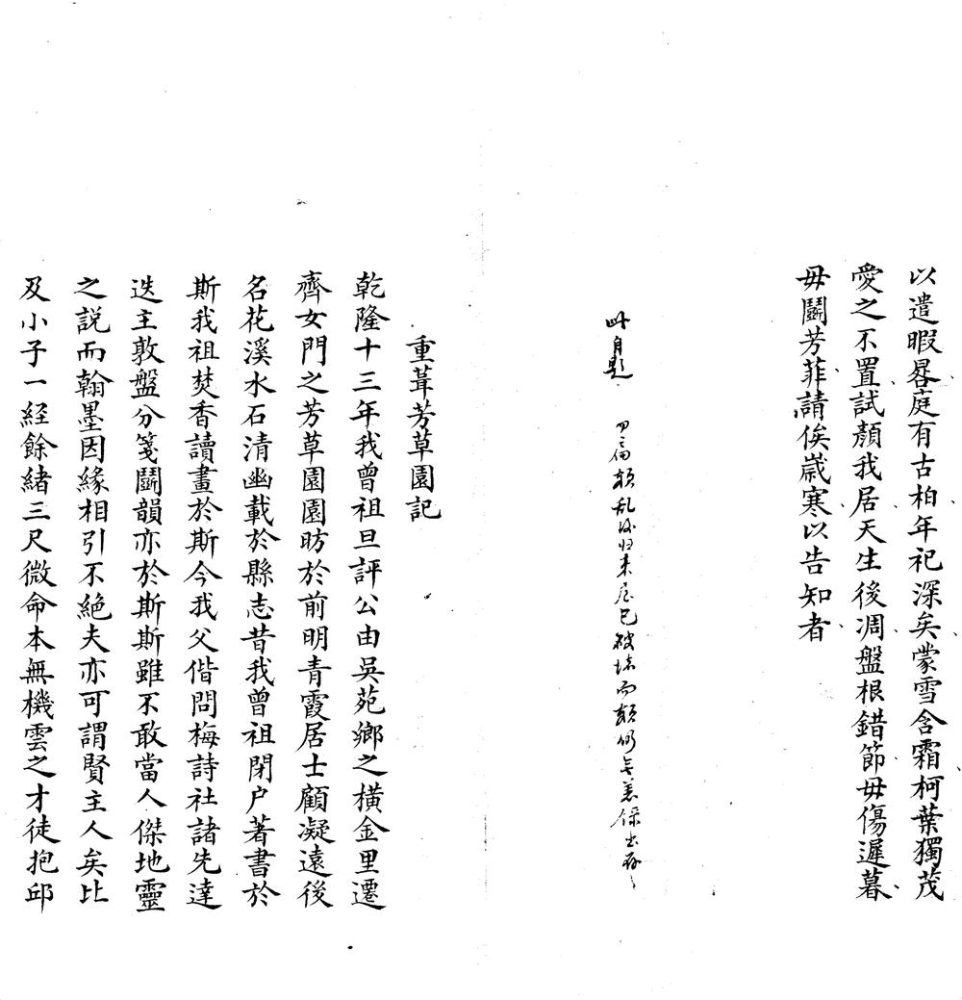 以遣暇晷庭有古柏年祀深矣蒙雪含霜柯葉獨茂
愛之不置試顏我居天生後凋盤根錯節毋傷遲暮
毋鬭芳菲請俟嵗寒以告知者
此自題 額乱後归来屋已破坏而額仍無恙保出
重葺芳草園記
乾隆十三年我曾祖旦評公由吳苑鄉之橫金里遷
齊女門之芳草園園昉於前明青霞居士顧凝遠後
名花溪水石清幽載於縣志昔我曾祖閉户著書於
斯我祖焚香讀畫於斯今我父偕問梅詩社諸先達
迭主敦盤分箋鬭韻亦於斯斯雖不敢當人傑地靈
之説而翰墨因緣相引不絕夫亦可謂賢主人矣比
及小子一經餘緒三尺微命本無機雲之才徒抱邱